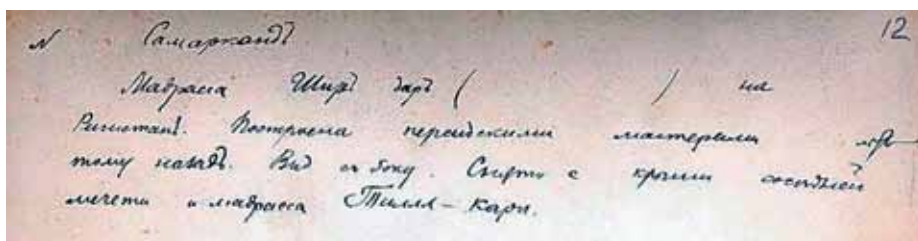 N Самаркандъ 12
Мадраса Ширъ даръ ( ) на
Регистанѣ. Построена персидскими мастерами лѣтъ
тому назадъ. Видъ съ боку. Снято с крыши сосѣдней
мечети и мадраса Тилля-Кари.